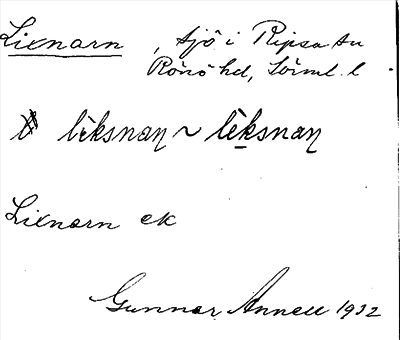 Lixnarn, sjö i Ripsa sn
Rönö hd, Sörml. l.
lèksnaɳ ~ lèksnaɳ
Lixnarn ek
Gunnar Annell 1932